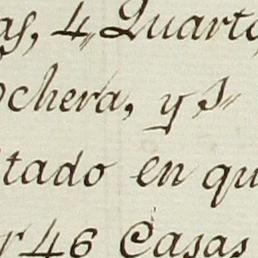 as, 4,, Quarto
ochera, y 3,,
tado en qu
r 46 Casas